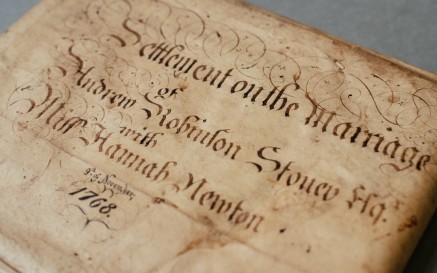 Settlement on the Marriage
of
Andrew Robinson Stoney Esq.
with
Miss Hannah Newton
9th November
1768.